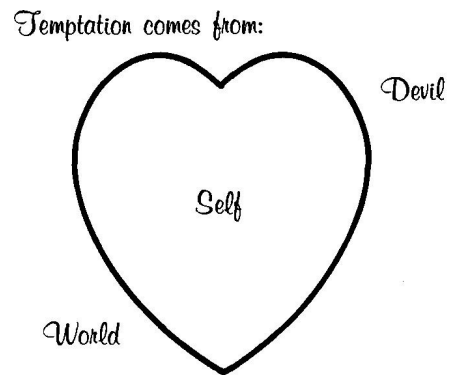 Temptation comes from:
Devil
Self
World